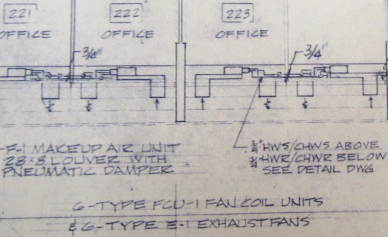 221
222
223
OFFICE
OFFICE
OFFICE
3/4"
3/4"
F-1 MAKEUP AIR UNIT
28x8 LOUVER WITH
PNEUMATIC DAMPER
3/4" HWS/CHWS ABOVE
3/4" HWR/CHWR BELOW
SEE DETAIL DWG
6-TYPE FCU-1 FAN COIL UNITS
& 6-TYPE E-1 EXHAUST FANS